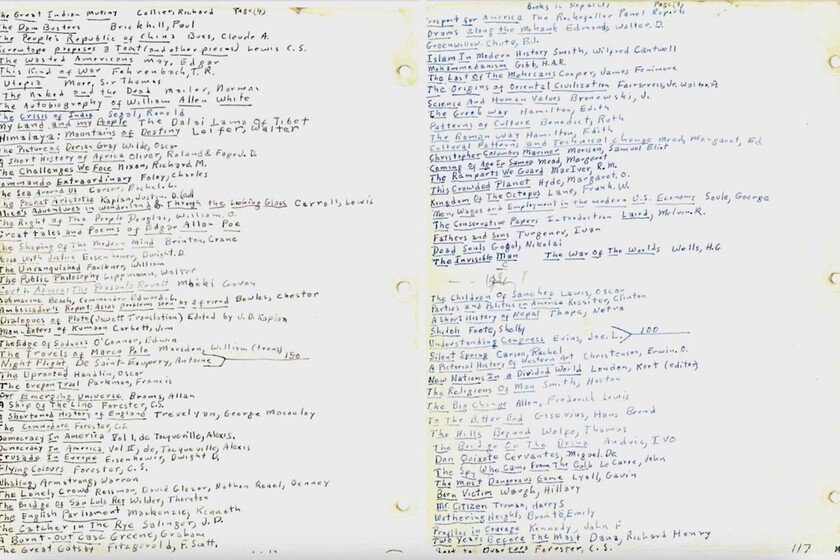 The Great Indian Mutiny Collier, Richard Page(4)
The Dam Busters Brickhill, Paul
The People's Republic of China Buss, Claude A.
Screwtape proposes a Toast (and other pieces) Lewis C.S.
The Wasted Americans May, Edgar
This Kind of War Fehrenbach, T.R.
Utopia More, Sir Thomas
The Naked and the Dead Mailer, Norman
The Autobiography of William Allen White
The Crisis of India Segal, Ronald
My Land and my People The Dalai Lama Of Tibet
Himalaya: Mountains of Destiny Laifer, Walter
The Picture of Dorian Gray Wilde, Oscar
A Short History of Africa Oliver, Roland & Faged. D.
The Challenges We Face Nixon, Richard M.
Commando Extraordinary Foley, Charles
The Sea Around Us Carson, Rachel. L.
The Pocket Aristotle Kaplan, Justin. D. (Ed
Alice's Adventures in Wonderland & Through the Looking Glass Carroll, Lewis
The Right Of The People Douglas, William. O.
Great tales and Poems of Edgar Allan Poe
The Shaping Of The Modern Mind Brinton, Crane
Peace with Justice Eisenhower, Dwight. D.
The Unvanquished Faulkner, William
The Public Philosophy Lippmann, Walter
South Africa: The Peasants Revolt Mbeki Govan
Submarine Beach, Commander Edward. L.
Ambassador's Report Asias problems seen by a friend Bowles, Chester
Dialogues of Plato (Jowett Translation) Edited by J.D. Kaplan
Man-Eaters of Kumaon Corbett, Jim
The Edge of Sadness O'Connor, Edwin
The Travels of Marco Polo Marsden, William (trans)
Night Flight De Saint-Exupery, Antoine 150
The Uprooted Handlin, Oscar
The Oregon Trail Parkman, Francis
Our Emerging Universe Broms, Allan
A Ship of The Line Forester, C.S.
A Shortened History of England Trevelyan, George Macaulay
The Commodore Forester, C.S.
Democracy In America Vol I, de Tocqueville, Alexis.
Democracy In America Vol II, de Tocqueville, Alexis
Crusade In Europe Eisenhower, Dwight D.
Flying Colours Forester, C. S.
Whaling Armstrong, Warron
The Lonely Crowd Reisman, David Glazer, Nathan Reuel, Denney
The Bridge of San Luis Rey Wilder, Thornton
The English Parliament Mackenzie, Kenneth
The Catcher in The Rye Salinger, J.D.
A Burnt-Out Case Greene, Graham
The Great Gatsby Fitzgerald, F. Scott.
Books in Page(3)
Prospect for America The Rockefeller Panel Reports
Drums along the Mohawk Edmonds, Walter. D.
Greenwillow. Chute, B.J.
Islam In Modern History Smith, Wilfred Cantwell
Mohammedanism Gibb, H.A.R.
The Last Of The Mohicans Cooper, James Fenimore
The Origins of Oriental Civilization Fairservis, Jr. Walter. A
Science And Human Values Bronowski, J.
The Greek way Hamilton, Edith
Patterns of Culture Benedict, Ruth
The Roman way Hamilton, Edith
Cultural Patterns and Technical Change Mead, Margaret, Ed
Christopher Columbus Mariner Morison, Samuel Eliot
Coming Of Age In Samoa Mead, Margaret
The Ramparts We Guard MacIver, R.M.
This Crowded Planet Hyde, Margaret. O.
Kingdom Of The Octopus Lane, Frank. W.
Men, Wages and Employment in the modern U.S. Economy Soule, George
The Conservative Papers Introduction Laird, Melvin. R.
Fathers and Sons Turgenev, Ivan
Dead Souls Gogol, Nikolai
The Invisible Man The War of The Worlds Wells, H.G
The Children Of Sanchez Lewis, Oscar
Parties and Politics in America Rossiter, Clinton
A Short History of Nepal Thapa, Netra
Shiloh Foote, Shelby
Understanding Congress Evins, Joe. L. 100
Silent Spring Carson, Rachel
A Pictorial History of Western Art Christensen, Erwin. O.
New Nations In a Divided World London, Kurt (editor)
The Religions Of Man Smith, Huston
The Big Change Allen, Frederick Lewis
To The Bitter End Gisevius, Hans Bernd
The Hills Beyond Wolfe, Thomas
The Bridge On The Drina Andric, IVO
Don Quixote Cervantes, Miguel. De
The Spy Who Came From The Cold Le Carre, John
The Most Dangerous Game Lyall, Gavin
Born Victim Waugh, Hillary
Mr Citizen Truman, Harry S
Wuthering Heights Bronte, Emily
Profiles in Courage Kennedy, John F
Two Years Before The Mast Dana, Richard Henry
Forester, C.S.
117